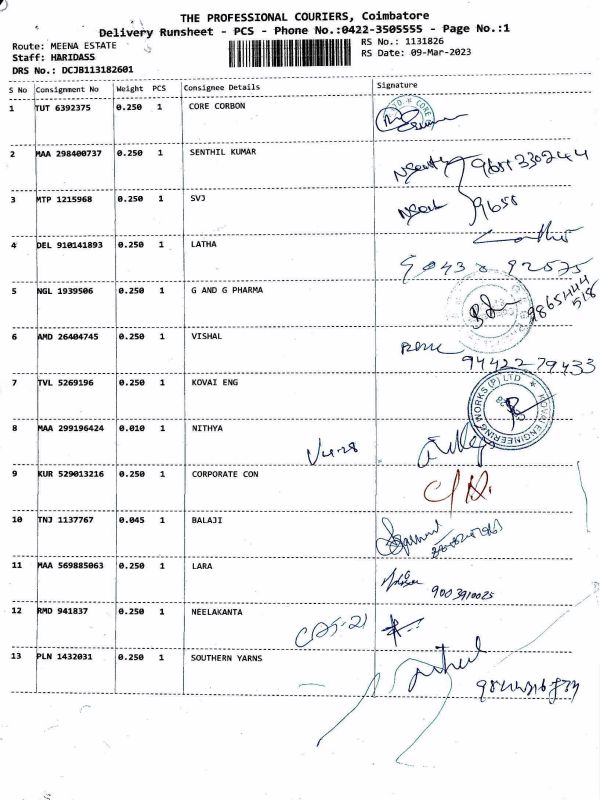 THE PROFESSIONAL COURIERS, Coimbatore
Delivery Runsheet - PCS - Phone No.:0422-3505555 - Page No.:1
Route: MEENA ESTATE
Staff: HARIDASS
DRS No.: DCJB113182601
RS No.: 1131826
RS Date: 09-Mar-2023
S No Consignment No Weight PCS Consignee Details Signature
1 TUT 6392375 0.250 1 CORE CORBON
2 MAA 298400737 0.250 1 SENTHIL KUMAR
3 MTP 1215968 0.250 1 SVJ
9655
4 DEL 910141893 0.250 1 LATHA
5 NGL 1939506 0.250 1 G AND G PHARMA
9865444
518
6 AMD 26404745 0.250 1 VISHAL
94422-79433
7 TVL 5269196 0.250 1 KOVAI ENG
KOVAI ENGINEERING WORKS (P) LTD
8 MAA 299196424 0.010 1 NITHYA
9 KUR 529013216 0.250 1 CORPORATE CON
10 TNJ 1137767 0.045 1 BALAJI
11 MAA 569885063 0.250 1 LARA
9003910025
12 RMD 941837 0.250 1 NEELAKANTA
13 PLN 1432031 0.250 1 SOUTHERN YARNS